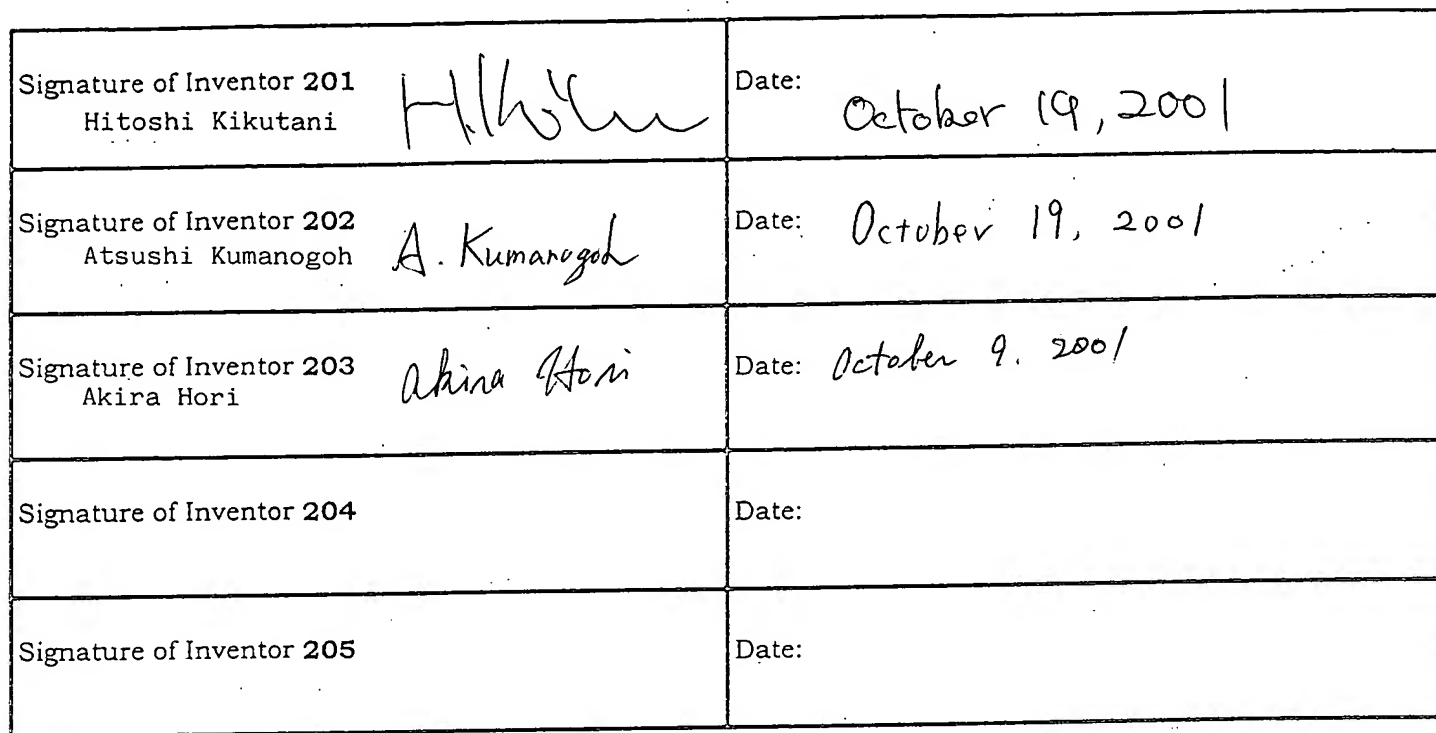 Signature of Inventor 201
Hitoshi Kikutani
Date: October 19, 2001
Signature of Inventor 202
Atsushi Kumanogoh A. Kumanogoh
Date: October 19, 2001
Signature of Inventor 203
Akira Hori Akira Hori
Date: October 9. 2001
Signature of Inventor 204
Date:
Signature of Inventor 205
Date: